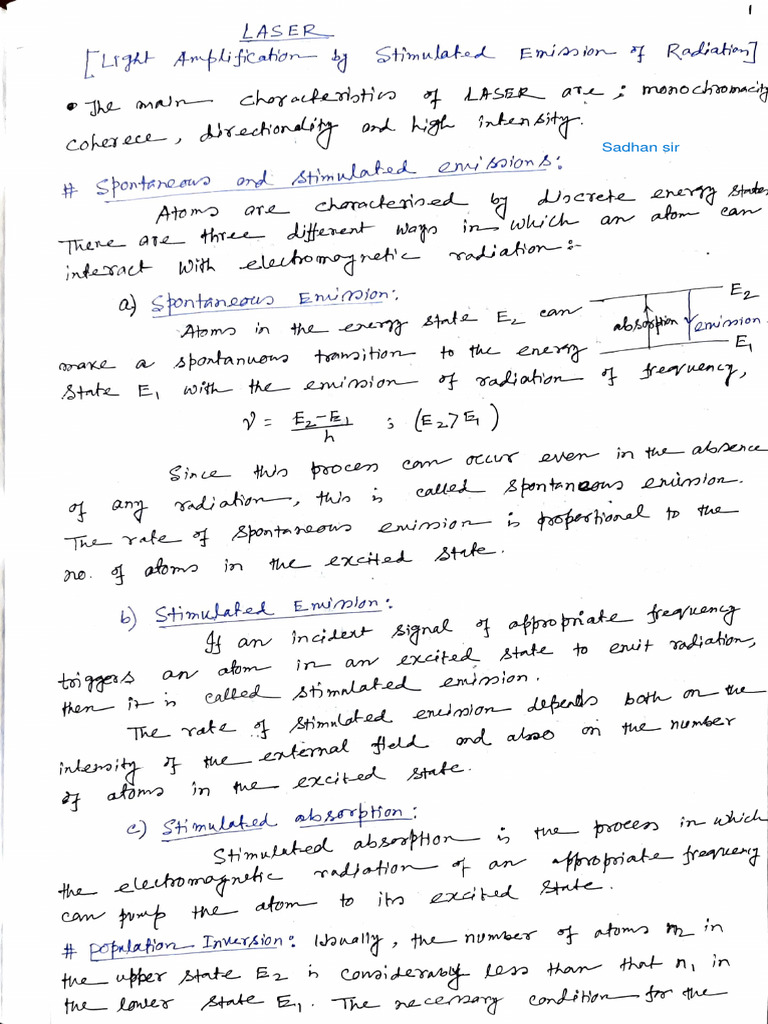 1
LASER
[Light Amplification by Stimulated Emission of Radiation]
• The main characteristics of LASER are; monochromacity
coherece, directionality and high intensity.
Sadhan sir
# Spontaneous and stimulated emissions:
Atoms are characterised by discrete energy states
There are three different ways in which an atom can
interact with electromagnetic radiation:-
a) Spontaneous Emission:
Atoms in the energy state E₂ can
make a spontanuous transition to the energy
state E₁ with the emission of radiation of frequency,
E₂
absorption emission
E₁
ν = E₂-E₁/h ; (E₂>E₁)
Since this process can occur even in the absence
of any radiation, this is called spontaneous emission.
The rate of spontaneous emission is proportional to the
no. of atoms in the excited state.
b) Stimulated Emission:
If an incident signal of appropriate frequency
triggers an atom in an excited state to emit radiation,
then it is called stimulated emission.
The rate of stimulated emission depends both on the
intensity of the external field and also on the number
of atoms in the excited state.
c) Stimulated absorption:
Stimulated absorption is the process in which
the electromagnetic radiation of an appropriate frequency
can pump the atom to its excited state.
# Population Inversion: Usually, the number of atoms n₂ in
the upper state E₂ is considerably less than that n₁ in
the lower state E₁. The necessary condition for the